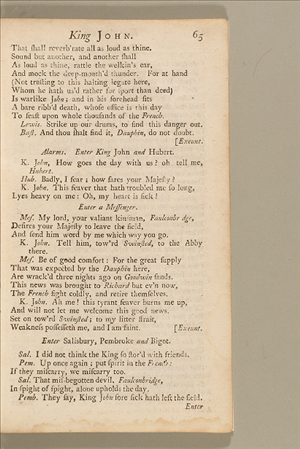 King JOHN. 65
That ſhall reverb'rate all as loud as thine.
Sound but another, and another ſhall
As loud as thine, rattle the welkin's ear,
And mock the deep-mouth'd thunder. For at hand
(Not truſting to this halting legate here,
Whom he hath us'd rather for ſport than deed)
Is warlike John; and in his forehead ſits
A bare ribb'd death, whoſe office is this day
To feaſt upon whole thouſands of the French.
Lewis. Strike up our drums, to find this danger out.
Baſt. And thou ſhalt find it, Dauphin, do not doubt.
[Exeunt.
Alarms. Enter King John and Hubert.
K. John. How goes the day with us? oh tell me,
Hubert.
Hub. Badly, I fear; how fares your Majeſty?
K. John. This feaver that hath troubled me ſo long,
Lyes heavy on me: Oh, my heart is ſick!
Enter a Meſſenger.
Meſ. My lord, your valiant kinſman, Faulconbridge,
Deſires your Majeſty to leave the field,
And ſend him word by me which way you go.
K. John. Tell him, tow'rd Swinſted, to the Abby
there.
Meſ. Be of good comfort: For the great ſupply
That was expected by the Dauphin here,
Are wrack'd three nights ago on Goodwin ſands.
This news was brought to Richard but ev'n now,
The French fight coldly, and retire themſelves.
K. John. Ah me! this tyrant feaver burns me up,
And will not let me welcome this good news.
Set on tow'rd Swinſted; to my litter ſtrait,
Weakneſs poſſeſſeth me, and I am faint. [Exeunt.
Enter Salisbury, Pembroke and Bigot.
Sal. I did not think the King ſo ſtor'd with friends.
Pem. Up once again; put ſpirit in the French:
If they miſcarry, we miſcarry too.
Sal. That miſ-begotten devil, Faulconbridge,
In ſpight of ſpight, alone upholds the day.
Pemb. They ſay, King John ſore ſick hath left the field.
Enter